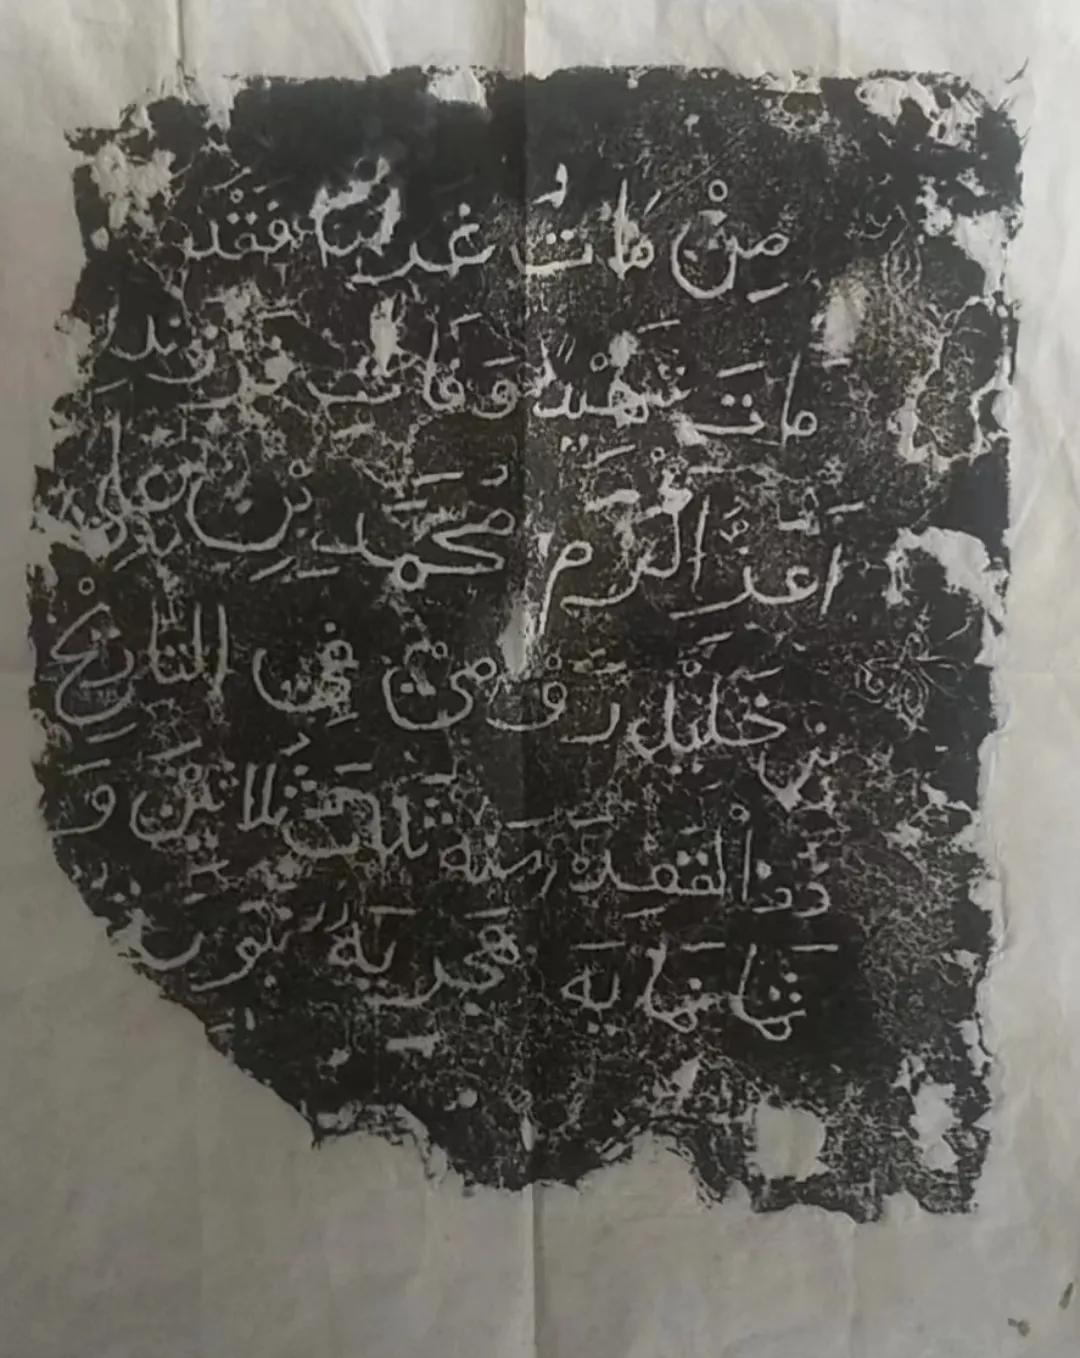 مِنْ مَاتُ غريبًا فَقَدْ
مَاتَ شَهْيِدًا وَفَاتَ فرزند
اَعزَّ اكرم مُحَمَّد بِنْ علي
بن خَلْيل رَوْمىْ فِى التاريْخ
ذذالقعدَة سنَة ثَلاثَ ثُلاثيْنَ وَ
ثمانمايَه هَجريَه